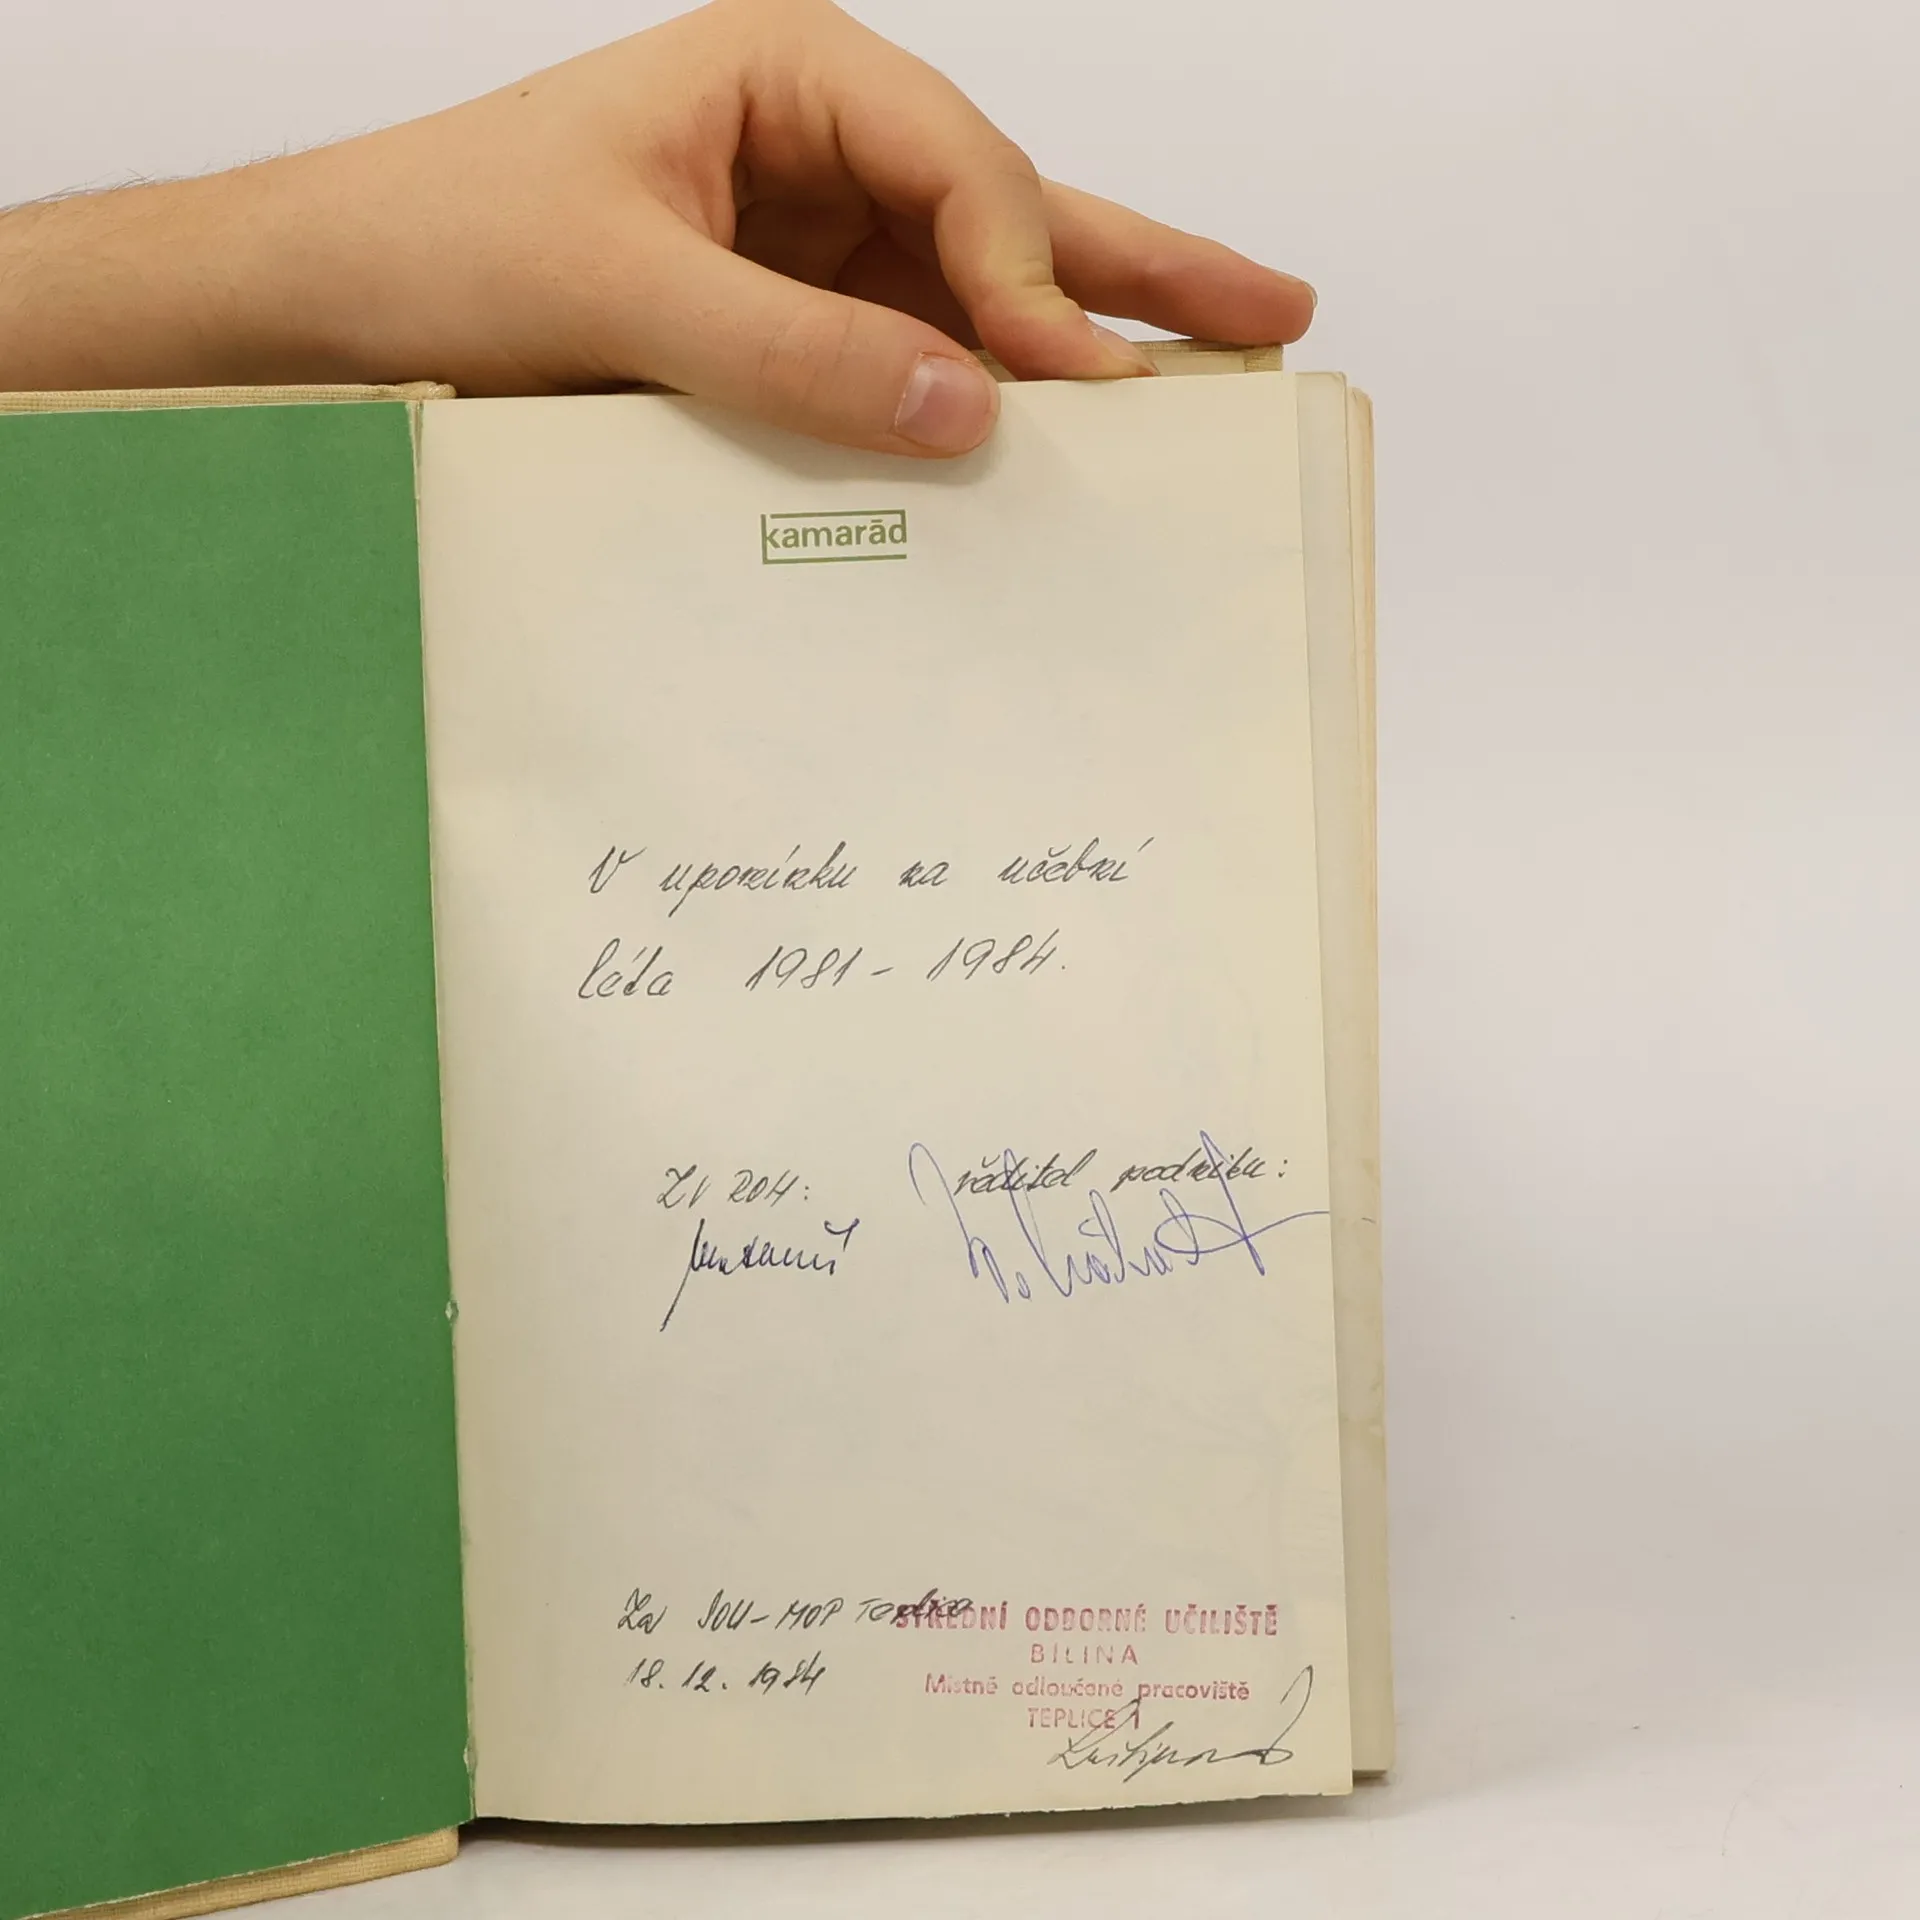 kamarád
V upomínku na učební
léta 1981 - 1984.
ZV ROH: ředitel podniku:
Za SOU - MOP Teplice
STŘEDNÍ ODBORNÉ UČILIŠTĚ
BÍLINA
18. 12. 1984
Místně odloučené pracoviště
TEPLICE 1